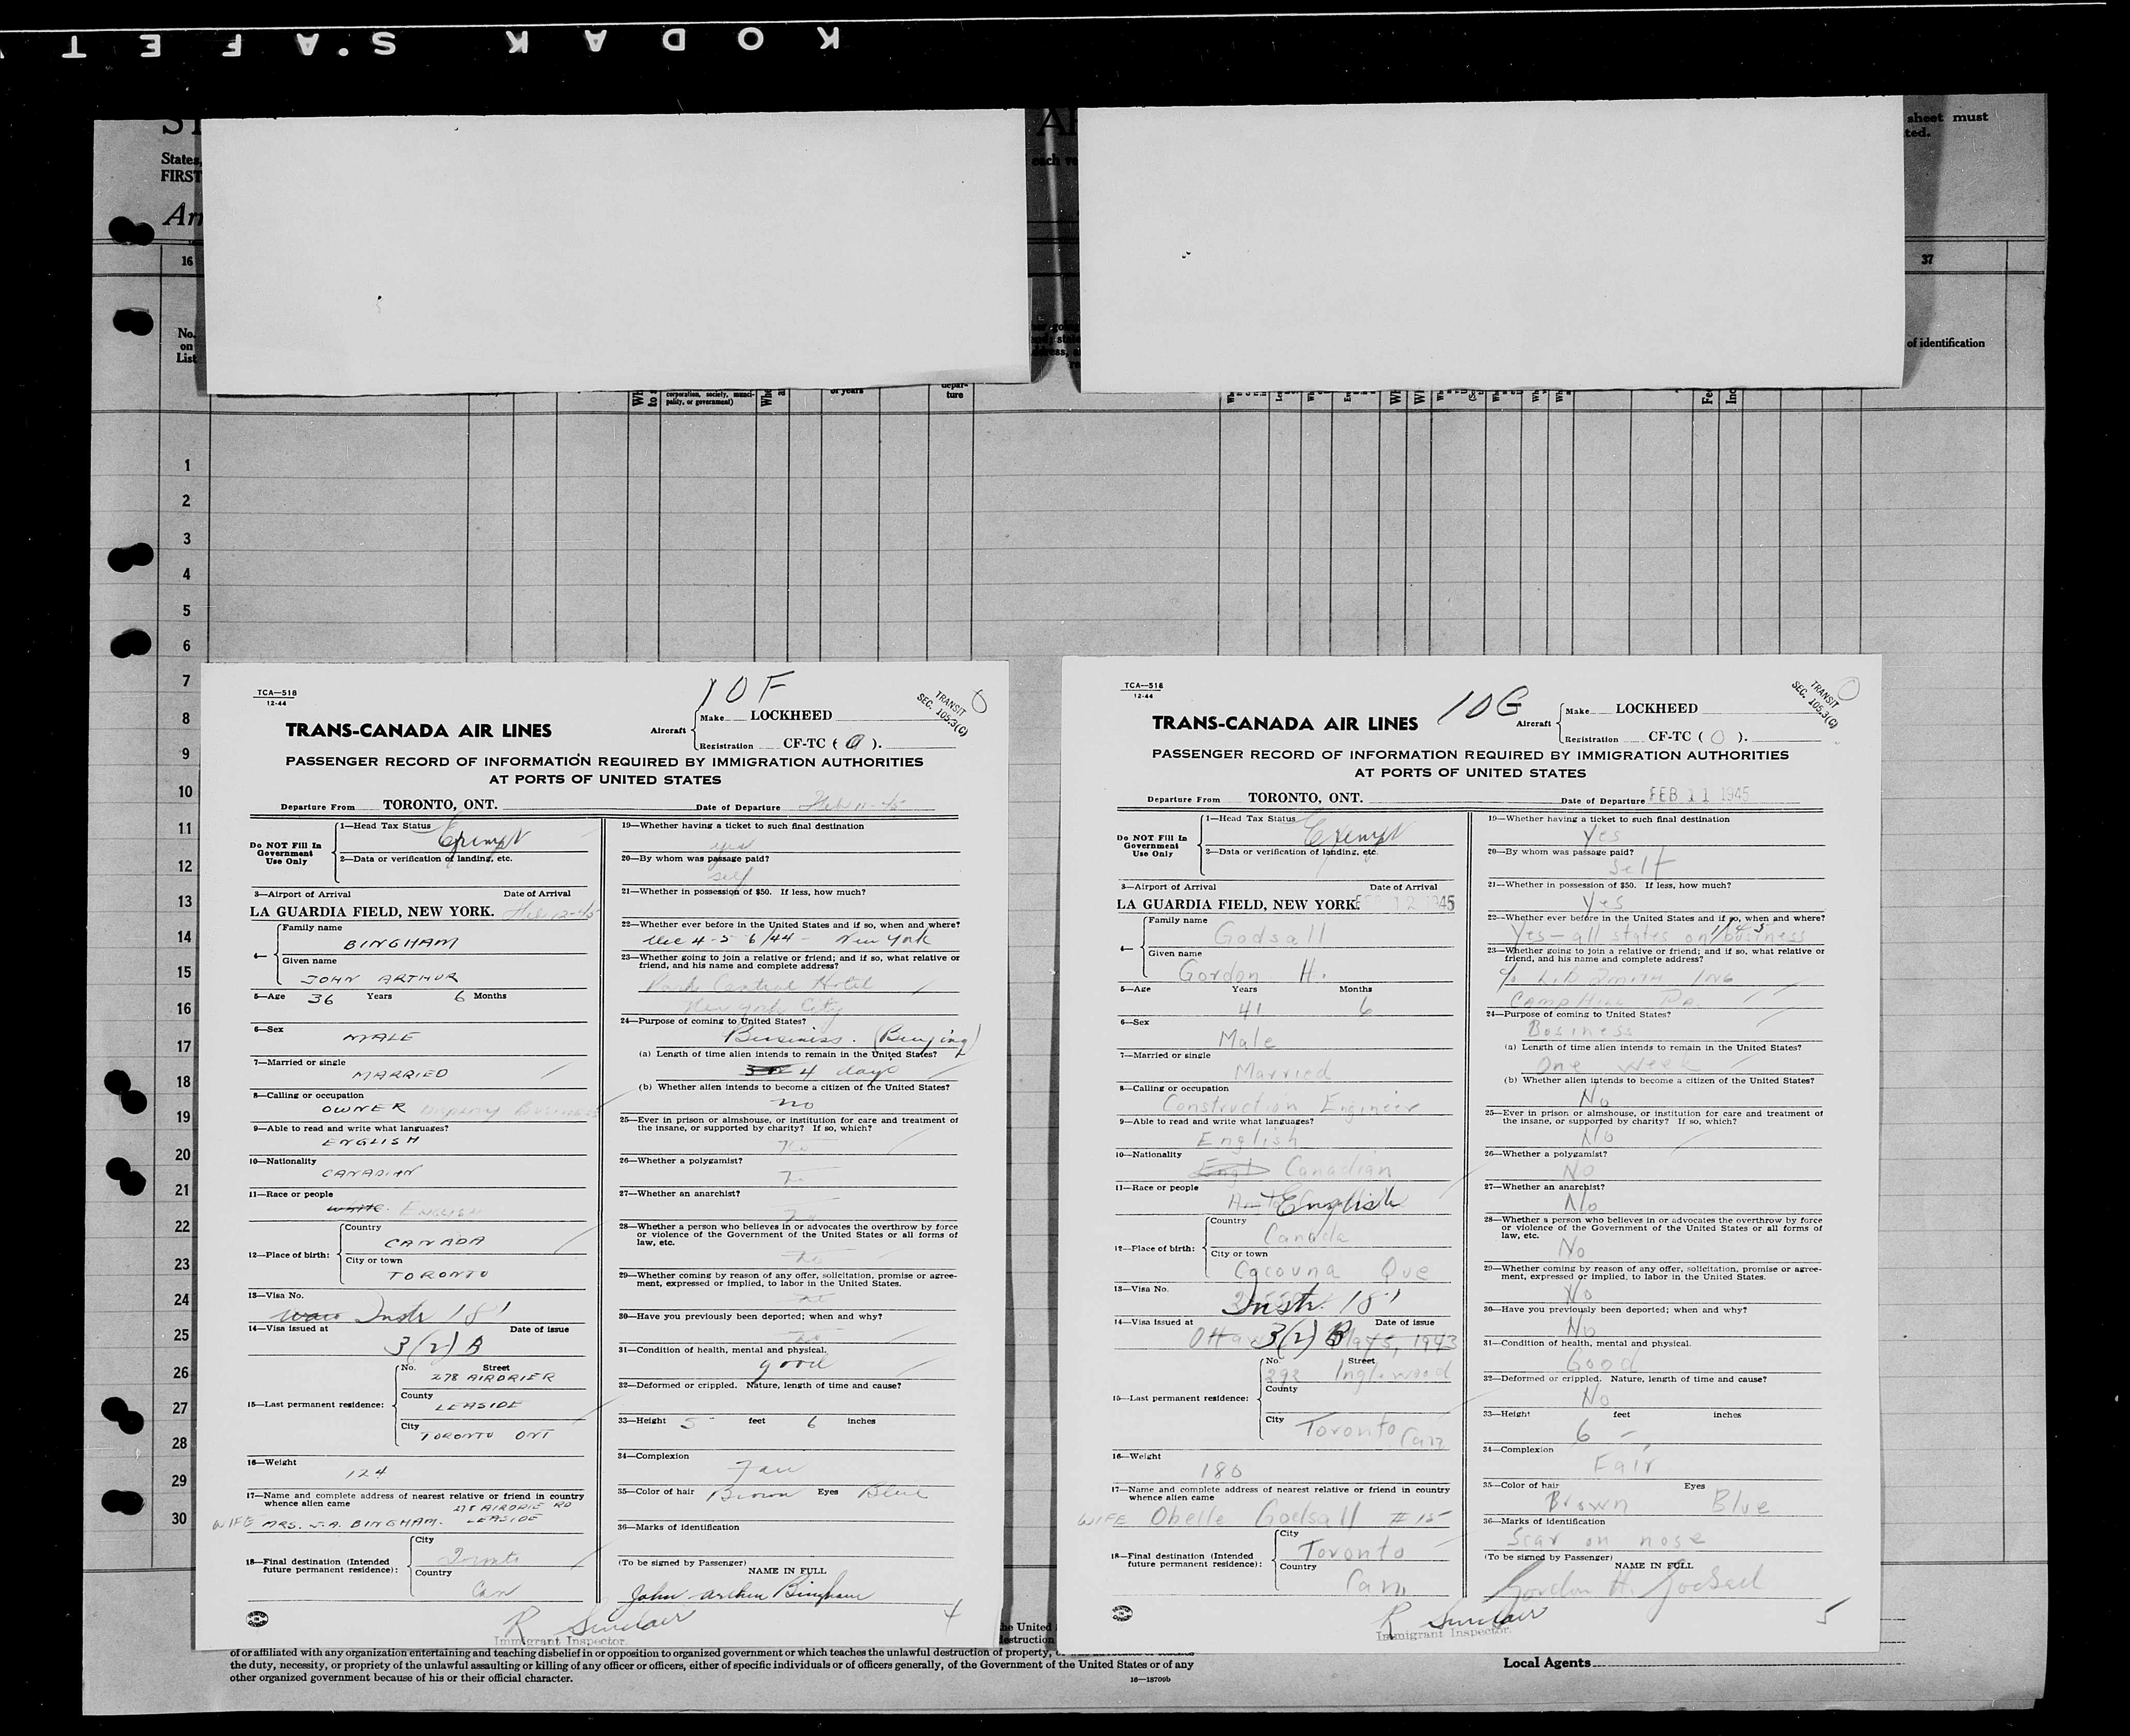 KODAK S'AFET
ST
AR
sheet must
ted.
States,
each ve
FIRST
Arr
16
37
No.
on
List
of identification
corporation, society, munici-
pality, or government)
of years
depar-
ture
1
2
3
4
5
6
7
8
9
10
11
12
13
14
15
16
17
18
19
20
21
22
23
24
25
26
27
28
29
30
TCA—518
12-44
10F
TRANSIT
SEC. 105.3(C)
TRANS-CANADA AIR LINES
Aircraft
Make LOCKHEED
Registration CF-TC ( Q ).
PASSENGER RECORD OF INFORMATION REQUIRED BY IMMIGRATION AUTHORITIES
AT PORTS OF UNITED STATES
Departure From TORONTO, ONT. Date of Departure Feb 11-45
Do NOT Fill In
Government
Use Only
1—Head Tax Status Exempt
2—Data or verification of landing, etc.
3—Airport of Arrival Date of Arrival
LA GUARDIA FIELD, NEW YORK. Feb 12-45
4—
Family name
BINGHAM
Given name
JOHN ARTHUR
5—Age 36 Years 6 Months
6—Sex
MALE
7—Married or single
MARRIED
8—Calling or occupation
OWNER
9—Able to read and write what languages?
ENGLISH
10—Nationality
CANADIAN
11—Race or people
white. ENGLISH
12—Place of birth:
Country
CANADA
City or town
TORONTO
13—Visa No.
Instr 181
14—Visa issued at Date of issue
3(2) B
15—Last permanent residence:
No. Street
278 AIRDRIER
County
LEASIDE
City
TORONTO ONT
16—Weight
124
17—Name and complete address of nearest relative or friend in country
whence alien came 278 AIRDRIE RD
WIFE MRS. J.A. BINGHAM. LEASIDE
18—Final destination (Intended
future permanent residence):
City
Toronto
Country
Can
19—Whether having a ticket to such final destination
yes
20—By whom was passage paid?
self
21—Whether in possession of $50. If less, how much?
22—Whether ever before in the United States and if so, when and where?
Dec 4-5-6/44 - New York
23—Whether going to join a relative or friend; and if so, what relative or
friend, and his name and complete address?
Park Central Hotel
New York City
24—Purpose of coming to United States?
Business. (Buying)
(a) Length of time alien intends to remain in the United States?
4 days
(b) Whether alien intends to become a citizen of the United States?
no
25—Ever in prison or almshouse, or institution for care and treatment of
the insane, or supported by charity? If so, which?
No
26—Whether a polygamist?
No
27—Whether an anarchist?
No
28—Whether a person who believes in or advocates the overthrow by force
or violence of the Government of the United States or all forms of
law, etc.
No
29—Whether coming by reason of any offer, solicitation, promise or agree-
ment, expressed or implied, to labor in the United States.
no
30—Have you previously been deported; when and why?
no
31—Condition of health, mental and physical.
good
32—Deformed or crippled. Nature, length of time and cause?
33—Height 5 feet 6 inches
34—Complexion
Fair
35—Color of hair Brown Eyes Blue
36—Marks of identification
(To be signed by Passenger)
NAME IN FULL
John Arthur Bingham
4
R Sinclair
Immigrant Inspector.
TCA—518
12-44
10G
TRANSIT
SEC. 105.3(C)
TRANS-CANADA AIR LINES
Aircraft
Make LOCKHEED
Registration CF-TC ( O ).
PASSENGER RECORD OF INFORMATION REQUIRED BY IMMIGRATION AUTHORITIES
AT PORTS OF UNITED STATES
Departure From TORONTO, ONT. Date of Departure FEB 11 1945
Do NOT Fill In
Government
Use Only
1—Head Tax Status Exempt
2—Data or verification of landing, etc.
3—Airport of Arrival Date of Arrival
LA GUARDIA FIELD, NEW YORK. FEB 12 1945
4—
Family name
Godsall
Given name
Gordon H.
5—Age Years Months
41 6
6—Sex
Male
7—Married or single
Married
8—Calling or occupation
Construction Engineer
9—Able to read and write what languages?
English
10—Nationality
Engl Canadian
11—Race or people
English
12—Place of birth:
Country
Canada
City or town
Cacouna Que
13—Visa No.
Instr. 181
14—Visa issued at Date of issue
3(2) B 1943
15—Last permanent residence:
No. Street
292 Inglewood
County
City
Toronto Can
16—Weight
180
17—Name and complete address of nearest relative or friend in country
whence alien came
WIFE Obelle Godsall #15
18—Final destination (Intended
future permanent residence):
City
Toronto
Country
Can
19—Whether having a ticket to such final destination
Yes
20—By whom was passage paid?
Self
21—Whether in possession of $50. If less, how much?
Yes
22—Whether ever before in the United States and if so, when and where?
Yes - all states on business 1/45
23—Whether going to join a relative or friend; and if so, what relative or
friend, and his name and complete address?
c/o L.B Smith Inc
Camp Hill Pa.
24—Purpose of coming to United States?
Business
(a) Length of time alien intends to remain in the United States?
One week
(b) Whether alien intends to become a citizen of the United States?
No
25—Ever in prison or almshouse, or institution for care and treatment of
the insane, or supported by charity? If so, which?
No
26—Whether a polygamist?
No
27—Whether an anarchist?
No
28—Whether a person who believes in or advocates the overthrow by force
or violence of the Government of the United States or all forms of
law, etc.
No
29—Whether coming by reason of any offer, solicitation, promise or agree-
ment, expressed or implied, to labor in the United States.
No
30—Have you previously been deported; when and why?
No
31—Condition of health, mental and physical.
Good
32—Deformed or crippled. Nature, length of time and cause?
No
33—Height feet inches
6 -
34—Complexion
Fair
35—Color of hair Eyes
Brown Blue
36—Marks of identification
Scar on nose
(To be signed by Passenger)
NAME IN FULL
Gordon H. Godsall
5
R Sinclair
Immigrant Inspector.
the United
destruction
of or affiliated with any organization entertaining and teaching disbelief in or opposition to organized government or which teaches the unlawful destruction of property,
the duty, necessity, or propriety of the unlawful assaulting or killing of any officer or officers, either of specific individuals or of officers generally, of the Government of the United States or of any
other organized government because of his or their official character.
16—18709b
Local Agents